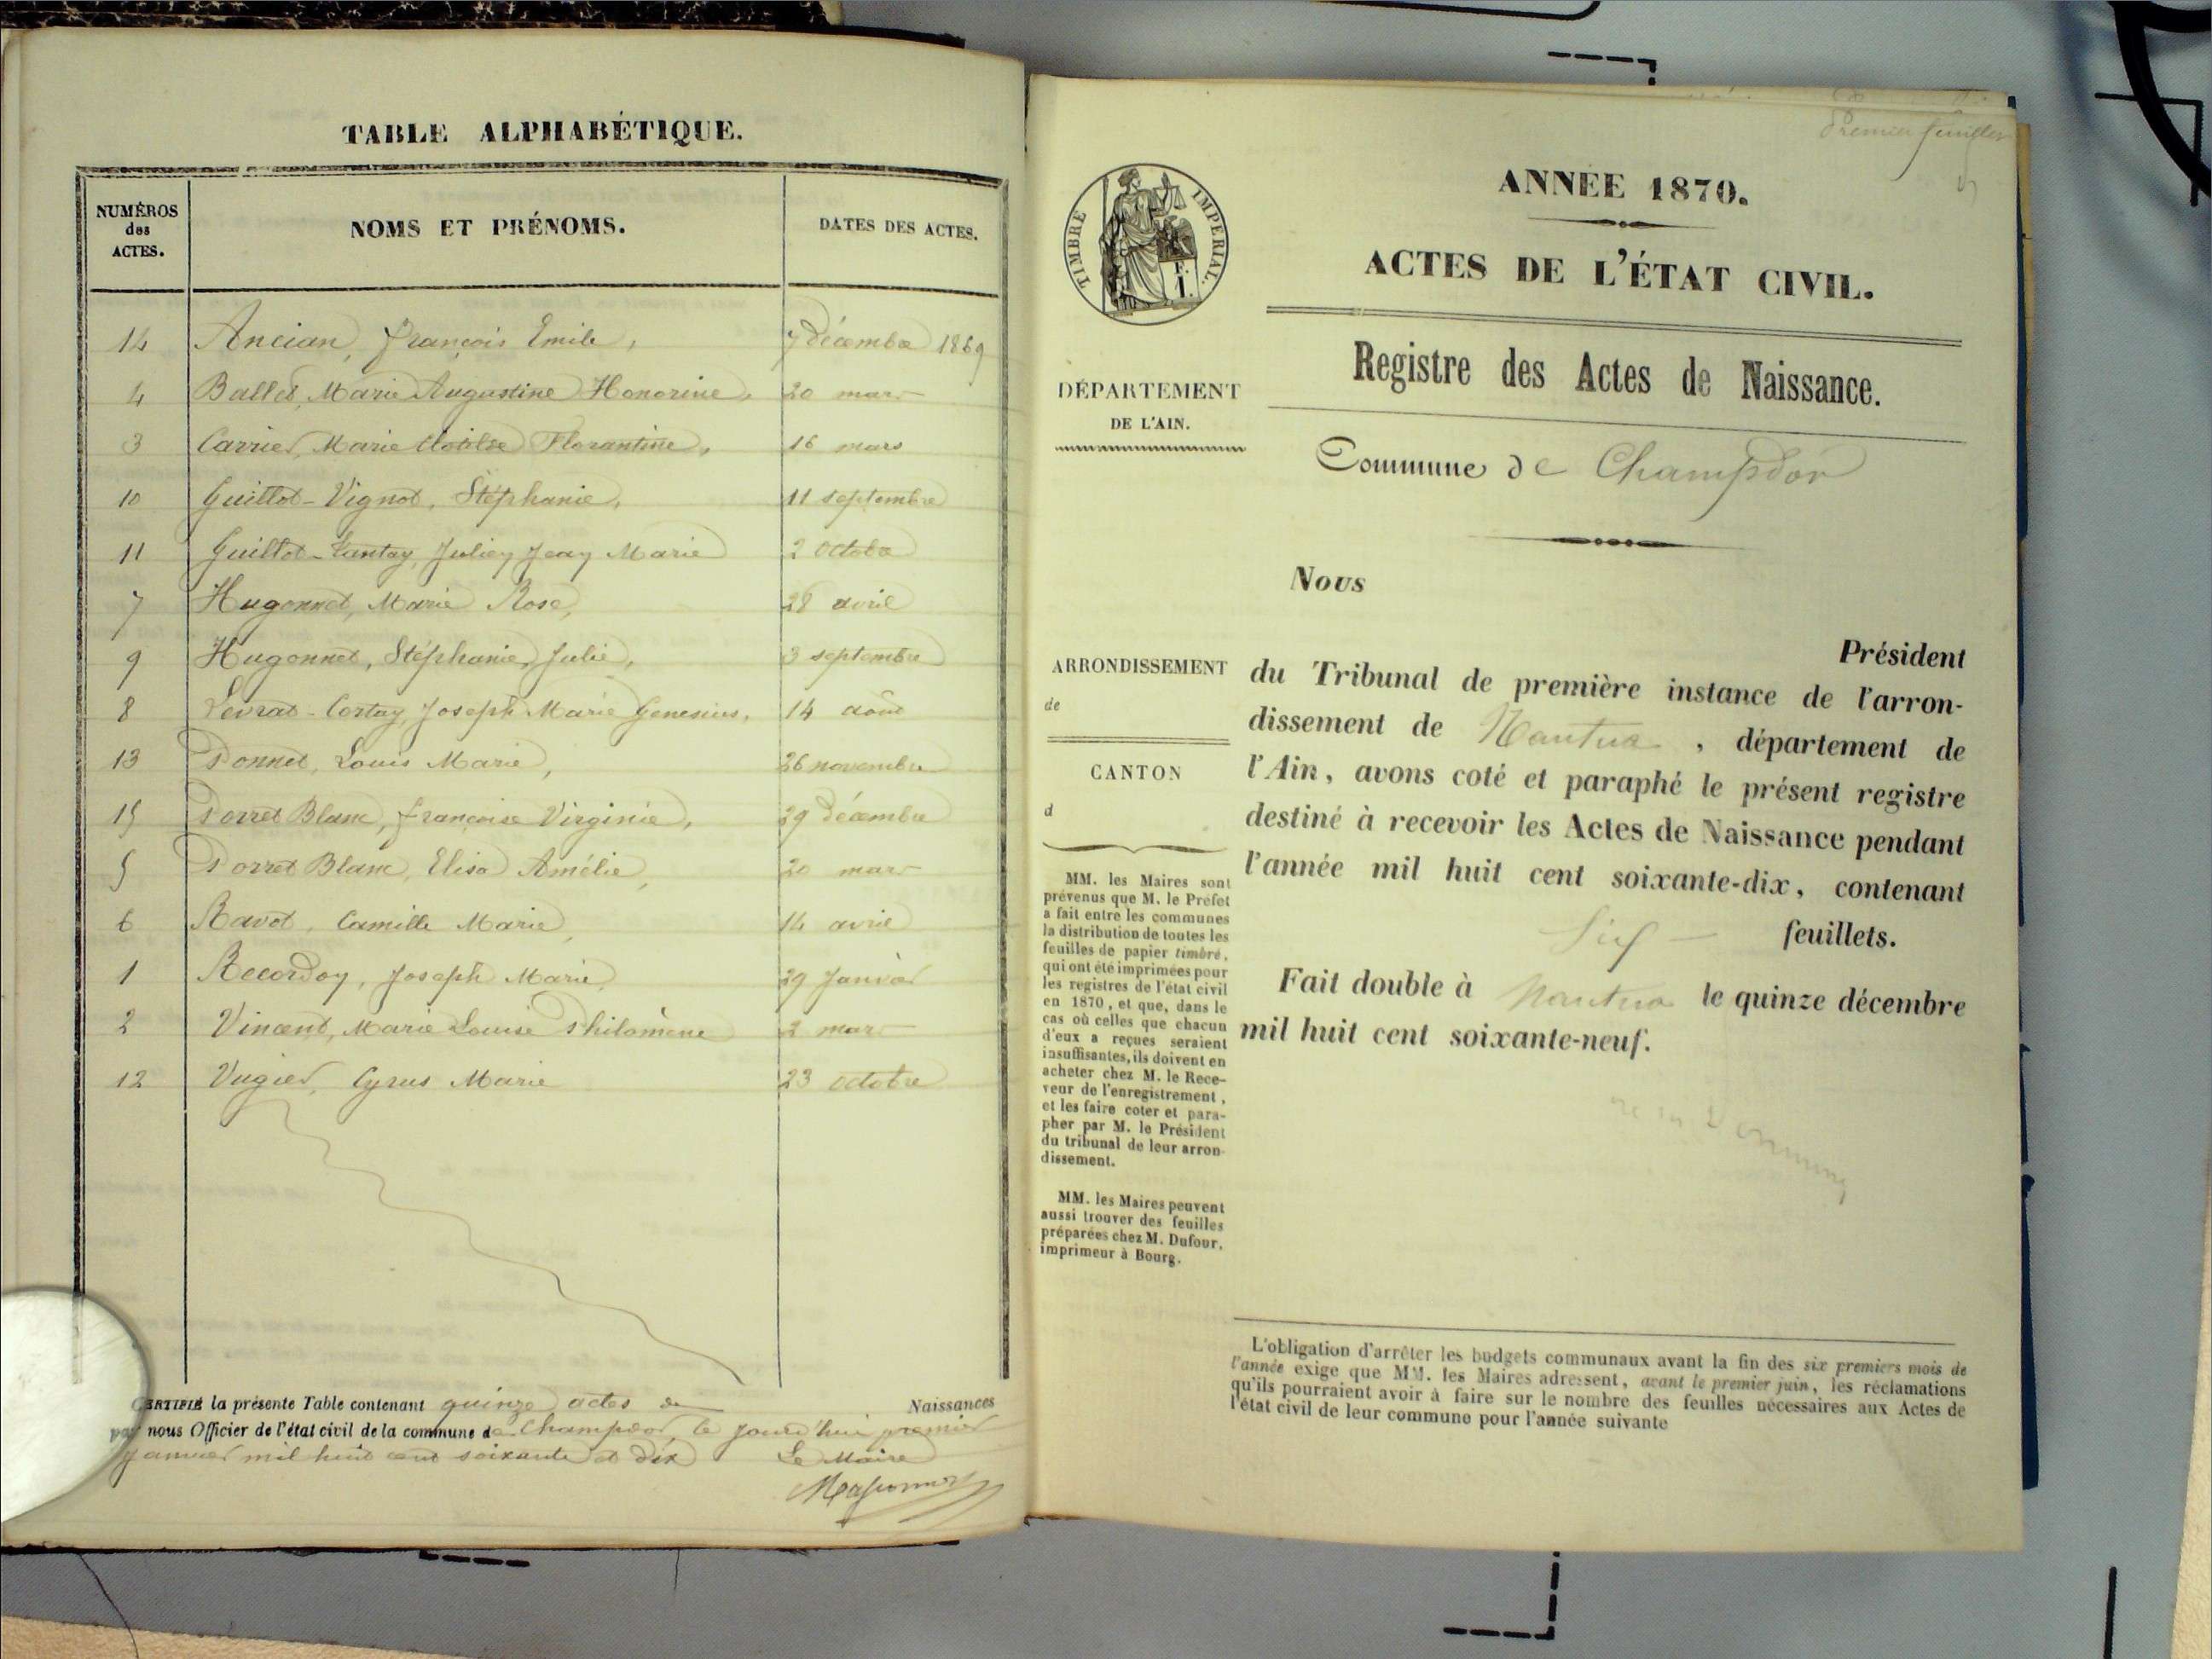 TABLE ALPHABÉTIQUE.
NUMÉROS
des
ACTES.
NOMS ET PRÉNOMS.
DATES DES ACTES.
14 Ancian, François Emile, 7 Décembre 1869
4 Ballet, Marie Augustine Honorine, 20 mars
3 Carrier, Marie Clotilde Florantine, 16 mars
10 Guillot-Vignot, Stéphanie, 11 septembre
11 Guillot- Julien Jean Marie 2 Octobre
7 Hugonnet, Marie Rose, 28 avril
9 Hugonnet, Stéphanie, Julie, 3 septembre
8 Levrat- Joseph Marie 14 août
13 Ponnet, Louis Marie, 26 novembre
15 Porret Blanc, Françoise Virginie, 29 Décembre
5 Porret Blanc, Elisa Amélie, 20 mars
6 Ravot, Camille Marie, 14 avril
1 Recordon, Joseph Marie, 29 Janvier
2 Vincent, Marie Louise Philomène 2 mars
12 Vugier, Cyrus Marie 23 octobre
CERTIFIÉ la présente Table contenant quinze actes de Naissances
par nous Officier de l'état civil de la commune de Champdor, le jourd'hui premier
janvier mil huit cent soixante et dix Le Maire
Premier feuillet
TIMBRE IMPERIAL.
E. I.
ANNÉE 1870.
ACTES DE L'ÉTAT CIVIL.
Registre des Actes de Naissance.
Commune de Champdor
DÉPARTEMENT
DE L'AIN.
ARRONDISSEMENT
de
CANTON
d
MM. les Maires sont
prévenus que M. le Préfet
a fait entre les communes
la distribution de toutes les
feuilles de papier timbré,
qui ont été imprimées pour
les registres de l'état civil
en 1870, et que, dans le
cas où celles que chacun
d'eux a reçues seraient
insuffisantes, ils doivent en
acheter chez M. le Rece-
veur de l'enregistrement,
et les faire coter et para-
pher par M. le Président
du tribunal de leur arron-
dissement.
MM. les Maires peuvent
aussi trouver des feuilles
préparées chez M. Dufour,
imprimeur à Bourg.
Nous
Président
du Tribunal de première instance de l'arron-
dissement de Nantua, département de
l'Ain, avons coté et paraphé le présent registre
destiné à recevoir les Actes de Naissance pendant
l'année mil huit cent soixante-dix, contenant
Six feuillets.
Fait double à Nantua le quinze décembre
mil huit cent soixante-neuf.
L'obligation d'arrêter les budgets communaux avant la fin des six premiers mois de
l'année exige que MM. les Maires adressent, avant le premier juin, les réclamations
qu'ils pourraient avoir à faire sur le nombre des feuilles nécessaires aux Actes de
l'état civil de leur commune pour l'année suivante